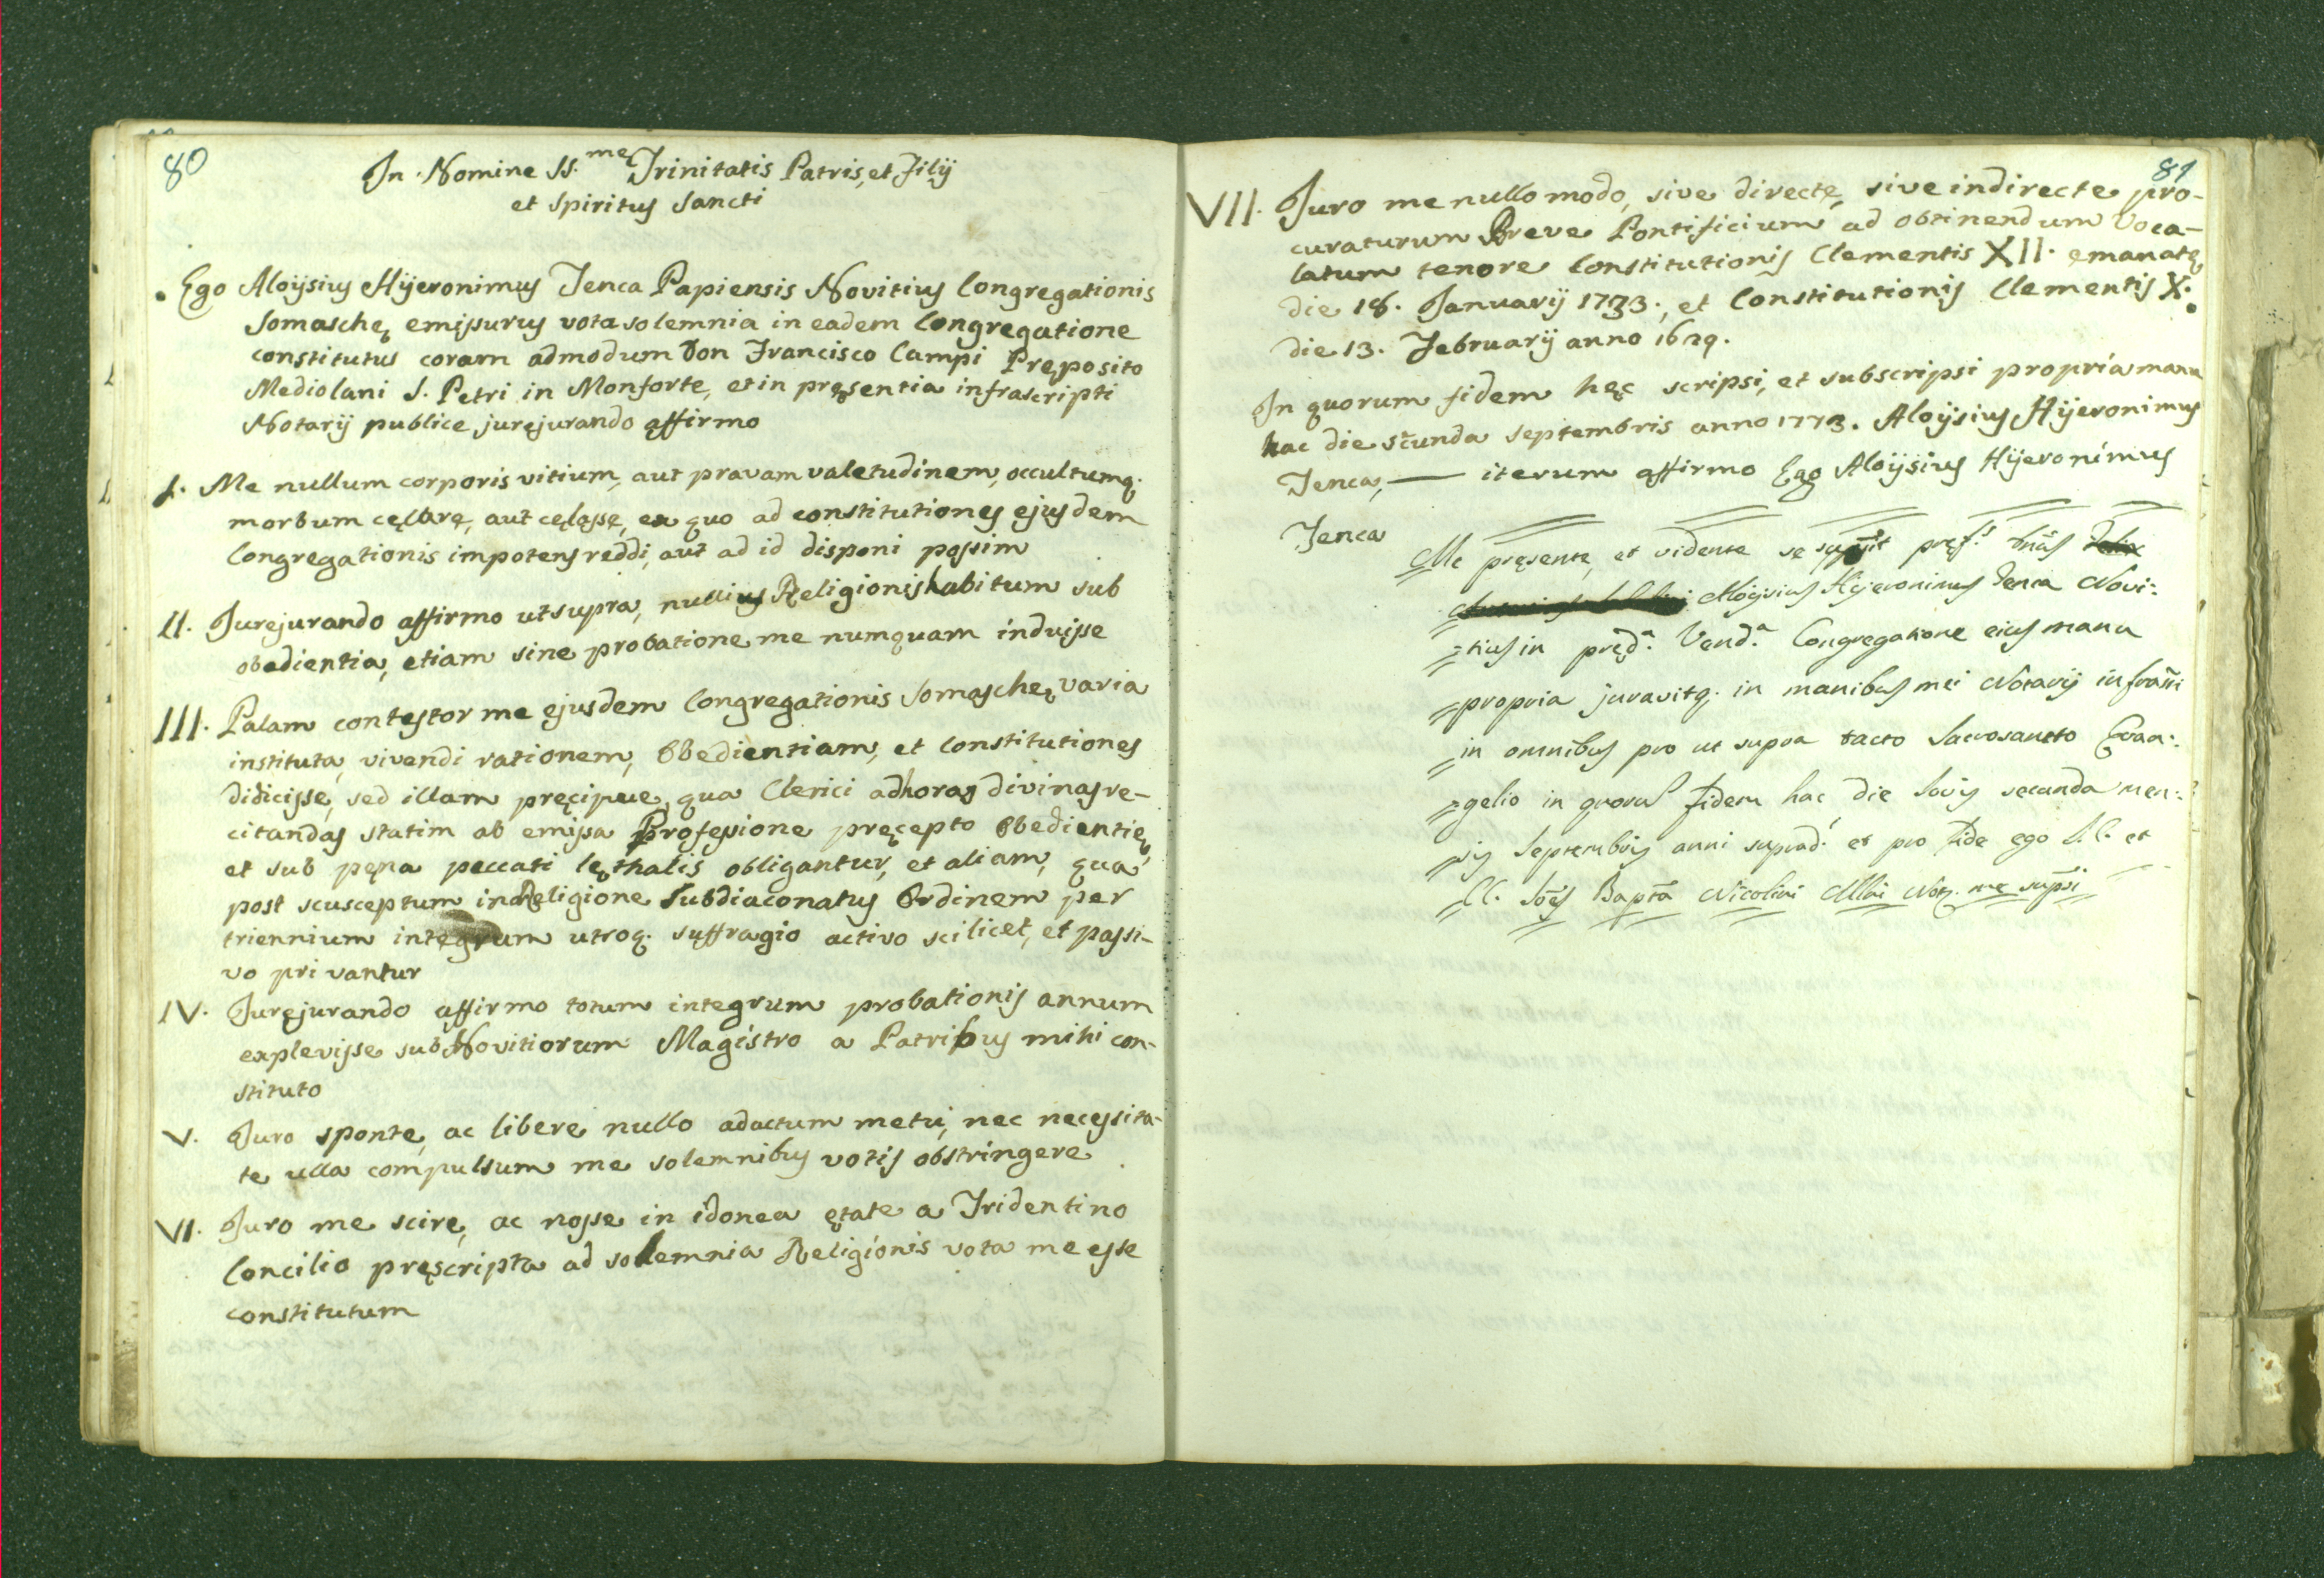 80
In Nomine SS.me Trinitatis Patris, et Filij
et Spiritus Sancti
Ego Aloÿsius Hÿeronimus Jenca Papiensis Novitius Congregationis
Somaschę emissurus vota solemnia in eadem Congregatione
constitutus coram admodum Don Francisco Campi Pręposito
Mediolani S. Petri in Monforte, et in pręsentia infrascripti
Notarij publice jurejurando affirmo
I. Me nullum corporis vitium, aut pravam valetudinem, occultumq.
morbum cęlare, aut cęlasse, ex quo ad constitutiones ejusdem
Congregationis impotens reddi, aut ad id disponi possim
II. Jurejurando affirmo ut supra, nullius Religionis habitum sub
obedientia, etiam sine probatione me numquam induisse
III. Palam contestor me ejusdem Congregationis Somaschę varia
instituta, vivendi rationem, Obedientiam, et Constitutiones
didicisse, sed illam pręcipue, qua Clerici ad horas divinas re-
citandas statim ab emissa Professione pręcepto Obedientię
et sub pęna peccati lęthalis obligantur, et aliam, qua
post scusceptum in Religione Subdiaconatus Ordinem per
triennium integrum utroq. suffragio activo scilicet, et passi-
vo privantur
IV. Jurejurando affirmo totum integrum probationis annum
explevisse sub Novitiorum Magistro a Patribus mihi con-
stituto
V. Juro sponte, ac libere nullo adactum metu, nec necessita-
te ulla compulsum me solemnibus votis obstringere
VI. Juro me scire, ac nosse in idonea ętate a Tridentino
Concilio pręscripta ad solemnia Religionis vota me esse
constitutum
81
VII. Juro me nullo modo, sive directe, sive indirecte pro-
curaturum Breve Pontificium ad obtinendum Voca-
latum tenore Constitutionis Clementis XII. emanatę
die 18. Januarij 1733., et Constitutionis Clementis X.
die 13. Februarij anno 1629.
In quorum fidem hęc scripsi, et subscripsi propria manu
hac die scunda Septembris anno 1773. Aloÿsius Hÿeronimus
Jenca, — iterum affirmo Ego Aloÿsius Hÿeronimus
Jenca
Me pręsente, et vidente se
Aloÿsius Hÿeronimus Jenca Novi:
=tius in pręd.a Vend.a Congregatione eius manu
propria juravitq. in manibus mei Notarij infrasti
in omnibus pro ut supra tacto Sacrosancto Evan:
=gelio in quorum fidem hac die Jovis secunda men:
sis Septembris anni suprad.i et pro fide ego I.C. et
C. Joes Bapta Nicolini Mlni Not. me supsi